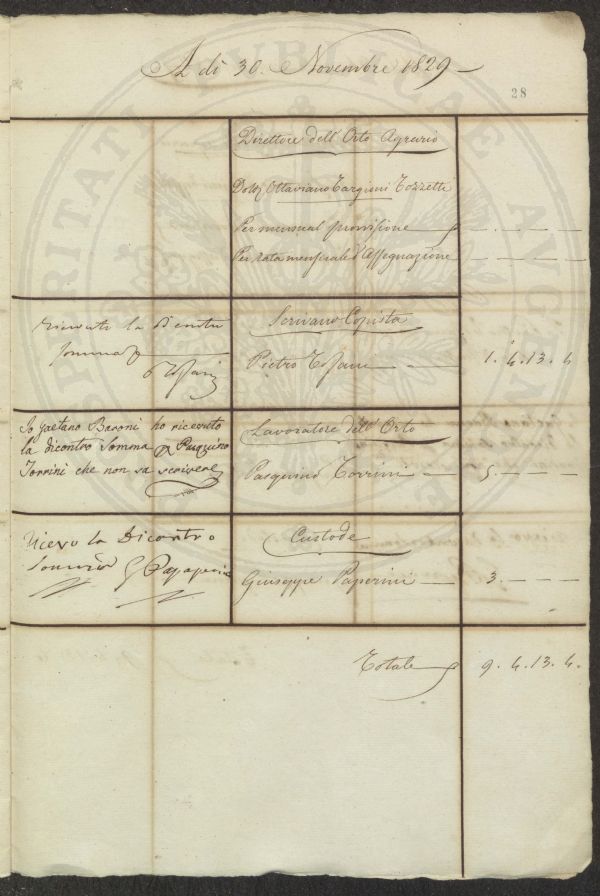 A dì 30. Novembre 1829
28
Direttore dell'Orto Agrario
Dott. Ottaviano Targioni Tozzetti
Per mensual provisione — . — . — . —
Per rata mensuale d'Assegnazione — . — . — . —
ricevuto la Dicontro
somma
Scrivano Copista
Pietro Tofani — 1. 4. 13. 4
Io Gaetano Baroni ho ricevuto
la dicontro somma p Pasquino
Torrini che non sa scrivere
Lavoratore dell'Orto
Pasquino Torrini — 5. — . — . —
Ricevo la Dicontro
Somma G Papaperini
Custode
Giuseppe Paperini — 3. — . — . —
Totale 9. 4. 13. 4.
PUBLICAE